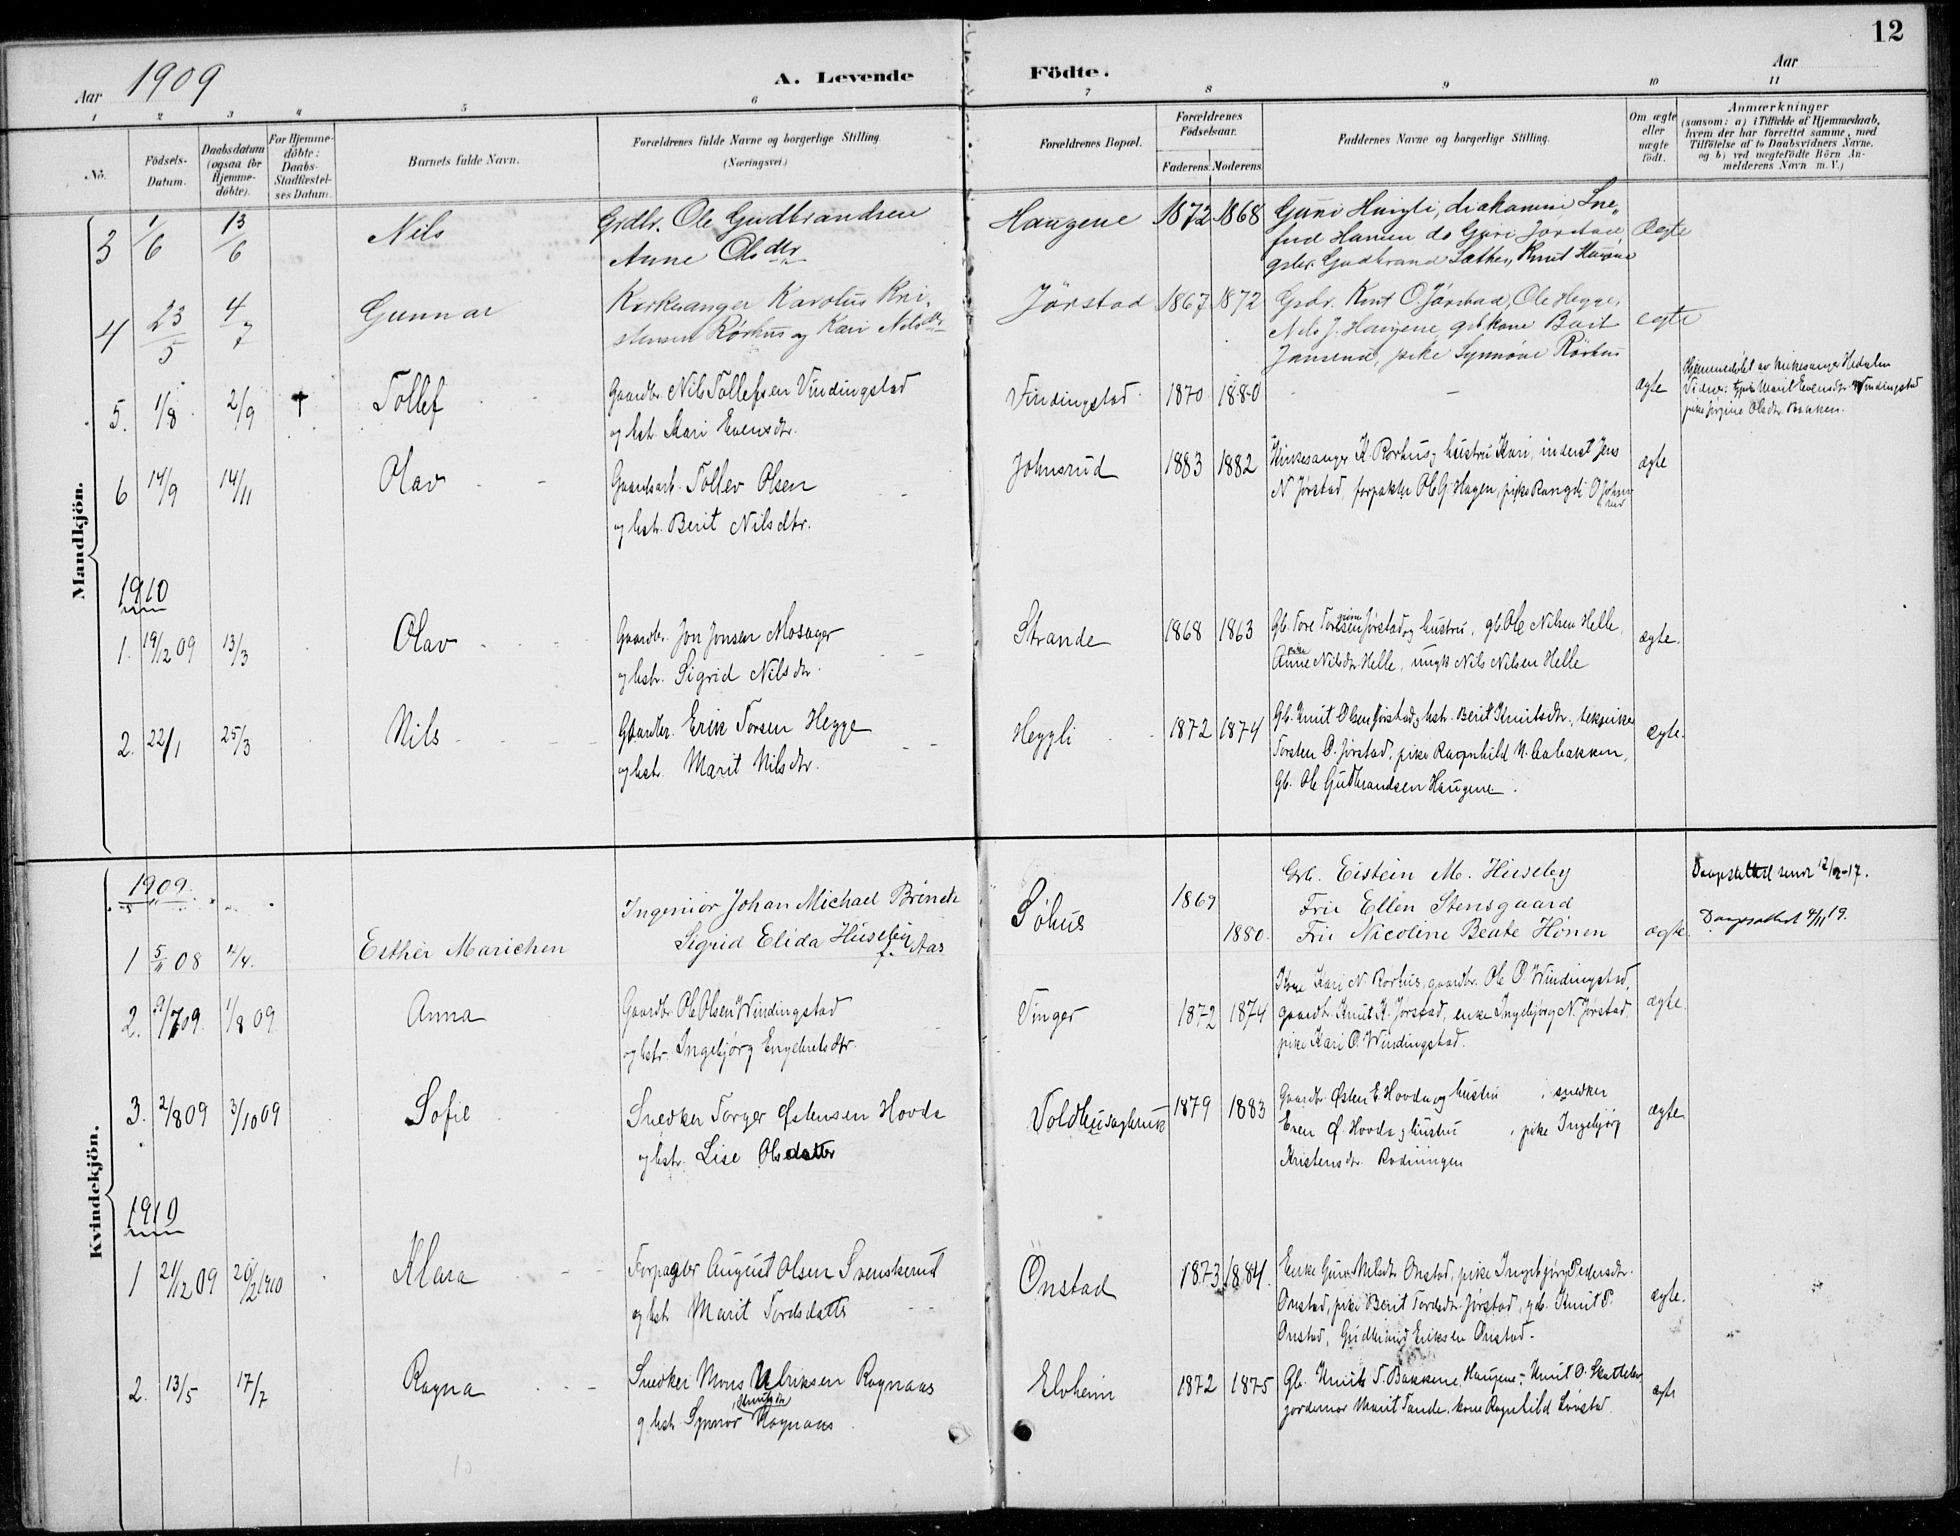 12
1909
A. Levende Födte.
Aar
Aar
1 2 3 4 5 6 7 8 9 10 11
No.
Födsels-
Datum.
Daabsdatum
(ogsaa for
Hjemme-
döbte).
For Hjemme-
döbte:
Daabs-
Stadfæstel-
ses Datum.
Barnets fulde Navn.
Forældrenes fulde Navne og borgerlige Stilling.
(Næringsvei.)
Forældrenes Bopæl.
Forældrenes
Födselsaar.
Faderens. Moderens.
Faddernes Navne og borgerlige Stilling.
Om ægte
eller
uægte
födt.
Anmærkninger
(saasom: a) i Tilfælde af Hjemmedaab,
hvem der har forrettet samme, med
Tilföielse af to Daabsvidners Navne,
og b) ved uægtefödte Börn An-
melderens Navn m. V.)
Mandkjön.
3 1/6 13/6 Nils
Grdbr. Ole Gudbrandsen
Anne Olsdtr
Haugene 1872 1868
Ægte
4 23/5 4/7 Gunnar
Kirkesanger Karolus Kri-
stensen Rörhus og Kari Nilsdtr
Jörstad 1867 1872
Grdr. Knut O. Jörstad, Ole Hegge,
Nels J. Haugene gbkone Barit
Jonsrud, pike Synnöve Rörhus
ægte
5. 1/8 2/9 † Tollef
Gaardbr. Nils Tollefsen Vindingstad
og hst. Kari Evensdtr.
Vindingstad 1870 1880
— —
ægte
Hjemmedøbt av kirkesanger Hedalen
Marit Evensdtr Vindingstad
pike Jørgine Olsdtr Bakken.
6 14/9 14/11 Olav
Gaardsarb. Tollev Olsen
og hst. Berit Nilsdtr.
Johnsrud 1883 1882
Kirkesanger K. Rørhus og hustru Kari, inderst Jens
N Jørstad, forpakter Ole G Hagen, pike Rangdi O Johnsrud
ægte
1910
1. 19/12 09 13/3 Olav
Gaardbr. Jon Jonsen Mosager
og hst. Sigrid Nilsdtr.
Strande 1868 1863
Gb. Tore Jørstad og hustru, gb Ole Nilsen Helle,
pike Anne Nilsdtr Helle, ungk Nils Nilsen Helle
ægte.
2. 22/1 25/3 Nils
Gaardbr. Erik Torsen Hegge
og hst. Marit Nilsdtr.
Heggli 1872 1874
Gb. Knut Olsen Jørstad og hst. Berit Knutsdtr.,
Torsten O. Jørstad, pike Ragnhild N.
Gb. Ole Gudbrandsen Haugene.
ægte.
Kvindekjön.
1909.
1 5/11 08 4. Esther Marichen
Ingeniør Johan Michael Brinch
Sigrid Elida Huseby
f. Aas
Söhus 1869 1880.
Grb. Eistein M. Huseby
Fru Ellen Stensgaard
Fru Nicoline Beate Hönen
ægte.
Daapsattest sendt 12/2-17.
Daapsattest 4/11 19.
2. 21/7 09. 1/8 09. Anna
Gaardbr Ole Olsen Windingstad
og hstr. Ingebjørg Engebretsdtr.
Vinger 1872 1874
Kone Kari N. Rørhus, gaardbr. Ole O. Windingstad,
gaardbr. Knut K. Jørstad, enke Ingebjørg N. Jørstad,
pike Kari O. Windingstad.
ægte.
3. 2/8 09 3/10 09 Sofie
Snedker Torger Østensen Hovda
og hst. Lise Olsdatter
Voldheimsgbruk 1879 1883
Gaardbr Østen E. Hovda og hustru , snedker
Even Ø. Hovda og hustru , pike Ingebjørg
Kristensdtr. Rudningen
ægte
1910
1 21/12 09 20/2 1910 Klara
Forpagter August Olsen Svenskerud
og hst. Marit Tordsdatter
Onstad 1873 1884.
Enke Guri Nilsdtr Onstad, pike Ingebjørg Pedersdtr.
Onstad, pike Berit Tordsdtr. Jørstad, gb. Knut P.
Onstad, Gudbrand Eriksen Onstad.
ægte.
2. 13/5 17/7 Ragna
Snedker Mons Ulriksen Rognaas
og hst. Synnøv Rognaas.
Elvheim 1872 1875
Gb. Knut T. Bakkene, Haugene, Knut O. Skattebu
jordemor Marit Tande, kone Ragnhild Lørstad.
ægte